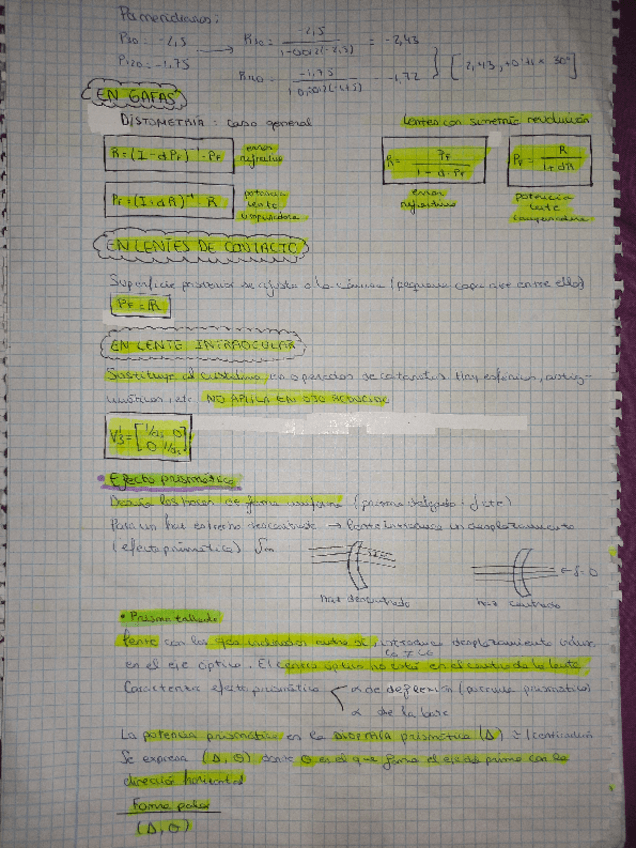 Por meridianos:
P30 = -2,5 → R30 = -2,5 / 1-0,012(-2,5) = -2,43
P120 = -1,75 R120 = -1,75 / 1-0,012(-1,75) -1,72 } [-2,43, +0,71 x 30°]
EN GAFAS
DISTOMETRIA: caso general
Lentes con simetría revolución
R = (I - dPF)⁻¹ · PF error refractivo
R = PF / 1 - d·PF error refractivo
PF = R / 1+dR potencia lente compensadora
PF = (I + dR)⁻¹ R potencia lente compensadora
EN LENTES DE CONTACTO
Superficie posterior se ajusta a la córnea (pequeña capa que entre ello)
PF = R
EN LENTE INTRAOCULAR
Sustituye al cristalino en operados de cataratas. Hay esféricas, astig-
máticas, etc NO APLICA EN OJO REDUCIDO
Efecto prismático
Desvía los haces de forma uniforme (prisma delgado: fcte)
Para un haz estrecho descentrado → lente introduce un desplazamiento
(efecto prismático)
haz descentrado
haz centrado
• Prisma tallado
lente con los ejes inclinados entre sí, introduce desplazamiento
en el eje óptico. El centro óptico no está en el centro de la lente
Caracteriza efecto prismático < α de deflexión (potencia prismática)
α de la base
La potencia prismática es la DIOPTRÍA prismática (Δ)
Se expresa (Δ, θ) donde θ es el que forma el eje del prisma con la
dirección horizontal
Forma polar
(Δ, θ)